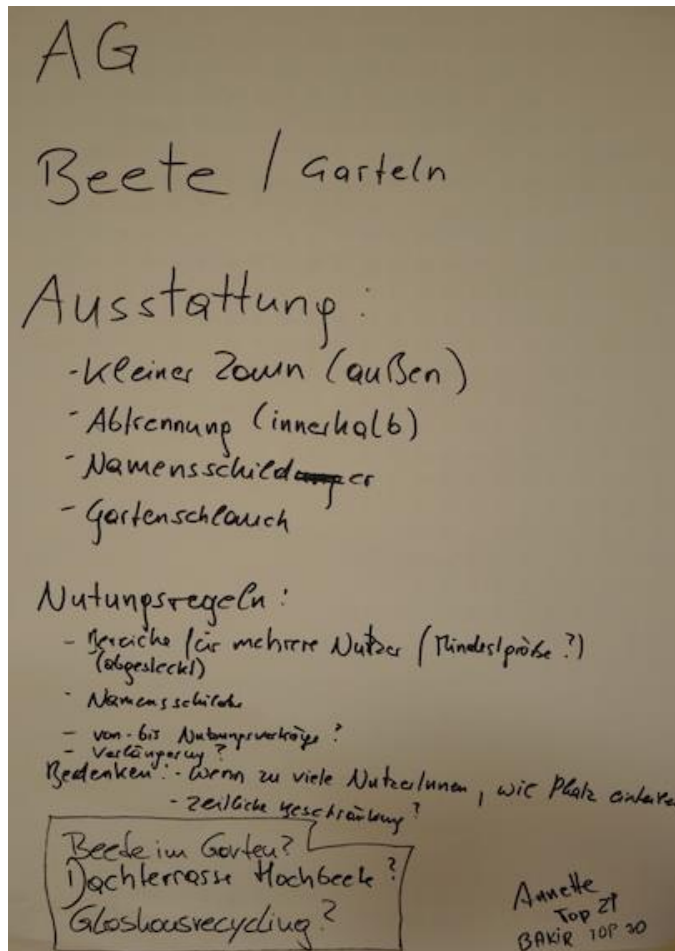 AG
Beete / Garteln
Ausstattung:
- Kleiner Zaun (außen)
- Abtrennung (innerhalb)
- Namensschilder
- Gartenschlauch
Nutungsregeln:
- Bereiche für mehrere Nutzer (Mindestgröße?)
(abgesteckt)
- Namensschilder
- von-bis Nutzungsverträge?
- Verlängerung?
Bedenken: - Wenn zu viele NutzerInnen, wie Platz einteilen
- zeitliche Beschränkung?
Beete im Garten?
Dachterrasse Hochbeete?
Glashausrecycling?
Annette
Top 21
BAKIR TOP 30